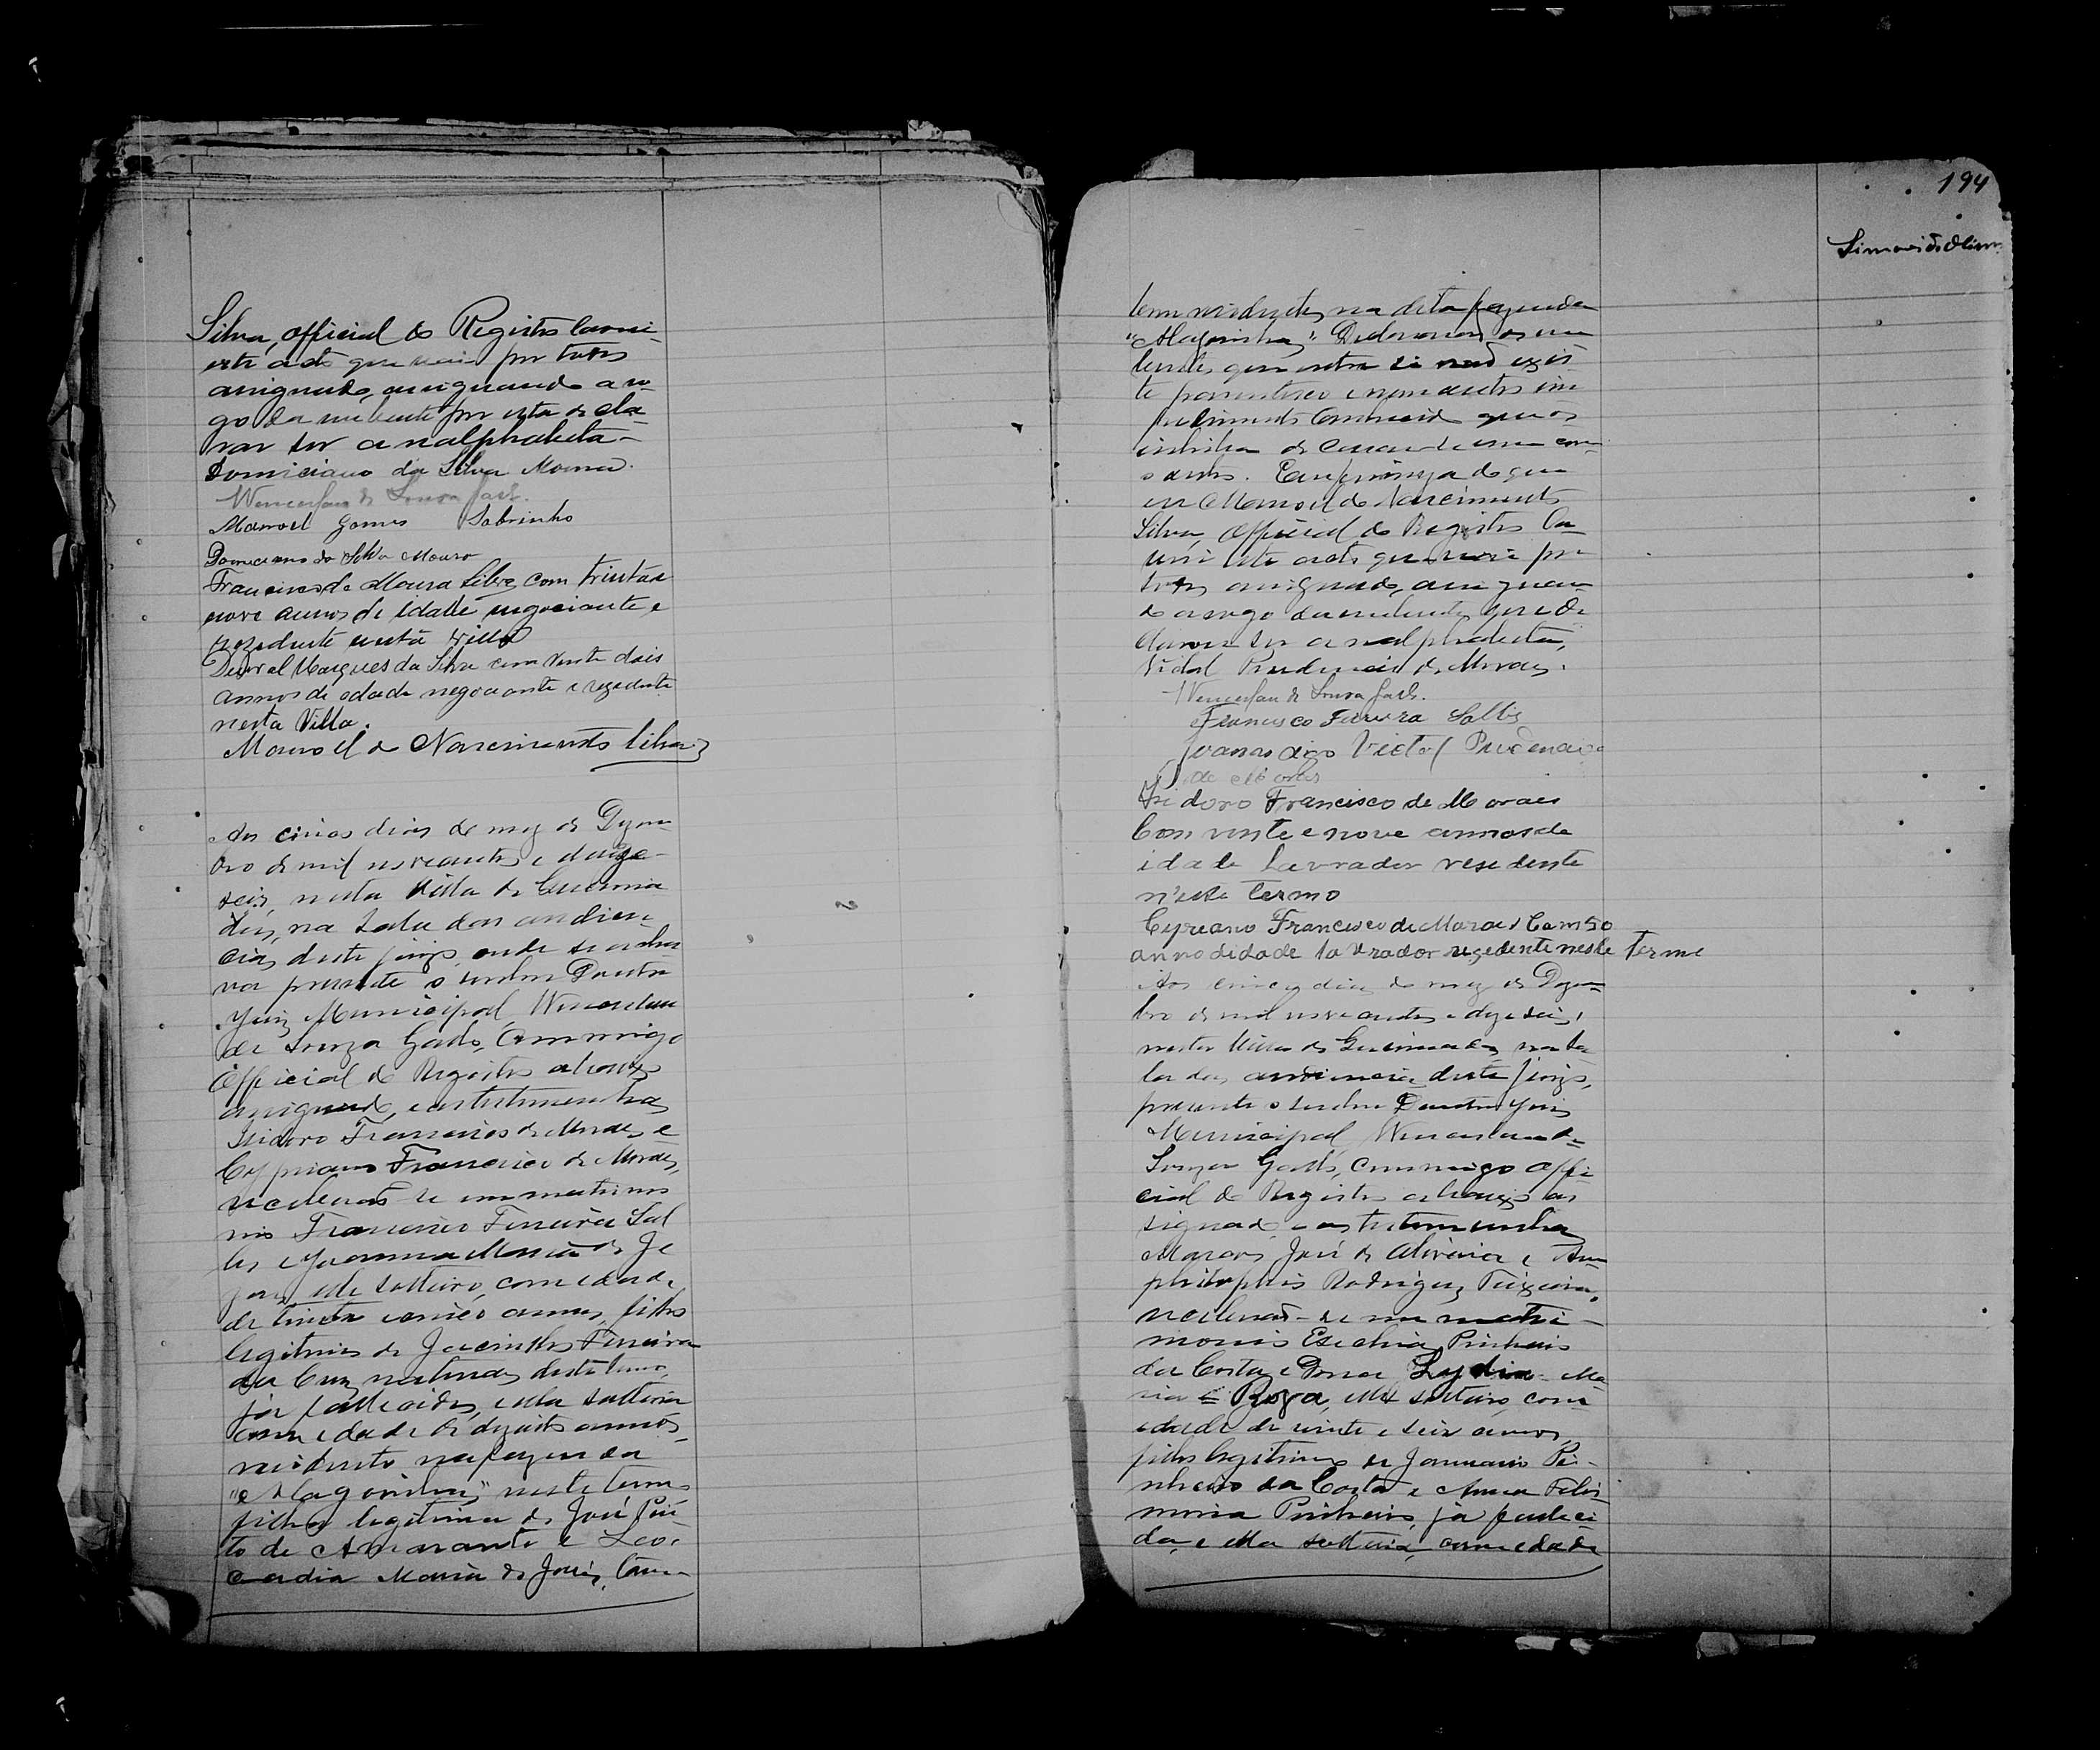 Silva, Official do Registro lavrei
este acto que vai por todos
assignado, assignando a ro-
go da nubente por esta decla-
rar ser analphabeta-
Domiciano da Silva Moura.
Wenceslau de Souza Gado.
Manoel Gomes Sobrinho
Domiciano da Silva Mouro
Francisco de Moura Silva, com trinta e
nove annos de idade negociante e
rezidente nesta villa
Durval Marques da Silva com vinte dois
annos de edade negociante e rezedente
nesta Villa.
Manoel do Nascimento Silva
Aos cinco dias do mez de Dezem-
bro de mil novecentos e deze-
seis, nesta Villa de Queima-
das, na Sala das audien-
cias deste juizo, onde se acha
va presente o senhor Doutor
Juiz Municipal Wenceslau
de Souza Gado, Commigo
Official do Registro abaixo
assignado, e as testemunhas
Isidoro Francisco de Moraes e
Cypriano Francisco de Moraes,
receberão-se em matrimo
nio Francisco Ferreira Sal
les e Joanna Maria de Je
sus, elle solteiro, com edade
de trinta e cinco annos, filho
legitimo de Jacintho Ferreira
da Cruz, deste termo,
já fallecidos, ella solteira
com edade de dezoito annos,
rezidente na fazenda
"Alagoinha," neste termo
filha legitima de José Pin-
to de Amarante e Leo-
cadia Maria de Jesus,
194
rezidentes na dita fazenda
"Alagoinha". Declararam os nu
bentes que entre si não exis-
te parentesco e nem outro im
pedimento conhecido que os
inhiba de casar-se um com
o outro. Em firmeza do que
eu Manoel do Nascimento
Silva, Official do Registro la-
vrei este acto que vai por
todos assignado, assignan-
do a rogo da nubente que de
clarou ser analphabeta,
Vidal Prudencio de Moraes.
Wenceslau de Souza Gado.
Francisco Ferreira Salles
Joanna digo Victal Prudencio
de Moraes
Isidoro Francisco de Moraes
Com vinte e nove annos de
idade Lavrador residente
n'este termo
Cypreano Francisco de Moraes Com 50
anno didade lavrador rezedente neste termo
Aos cinco dias do mez de Dezem-
bro de mil novecentos e dezeseis,
nesta Villa de Queimadas, na Sa-
la das audiencia deste juizo,
presente o senhor Doutor Juiz
Municipal, Wenceslau de
Souza Gado, commigo Offi
cial do Registro abaixo as
signado e as testemunhas
Marcos José de Oliveira e Am
philophio Rodrigues Teixeira,
receberão-se em matri-
monio Esechias Pinheiro
da Costa e Dona Lydia Ma
ria Roza, elle solteiro, com
edade de vinte e seis annos,
filho legitimo de Januario Pi-
nheiro da Costa e Anna
Pinheiro, já falleci
da, e ella solteira, com edade